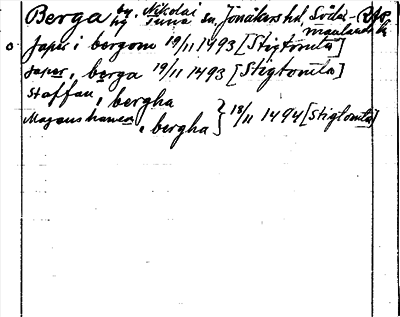 Berga, by, Nikolai sn, Jönåkers hd, Söder-
ny
manlands
Japar i bergom 19/11 1493 [Stigtomta]
Japar, berga 19/11 1493 [Stigtomta]
Staffan, bergha
Magnus hanes, bergha } 18/11 1494 [Stigtomta]